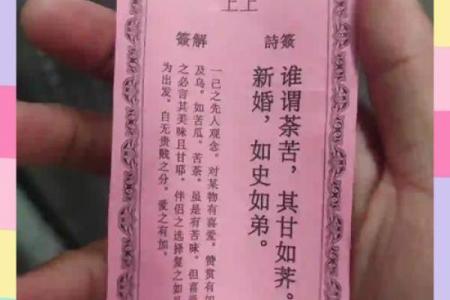 上上
簽詩
谁谓荼苦，其甘如荠。
新婚，如史如弟。
解簽
一己之先人观念。对某物有喜爱，赞赏有
及乌。如苦瓜。苦茶。虽是有苦味。但喜爱
之必言其美味且甘耶。伴侣之选择复之如
为出发。自无贵贱之分。爱之有加。